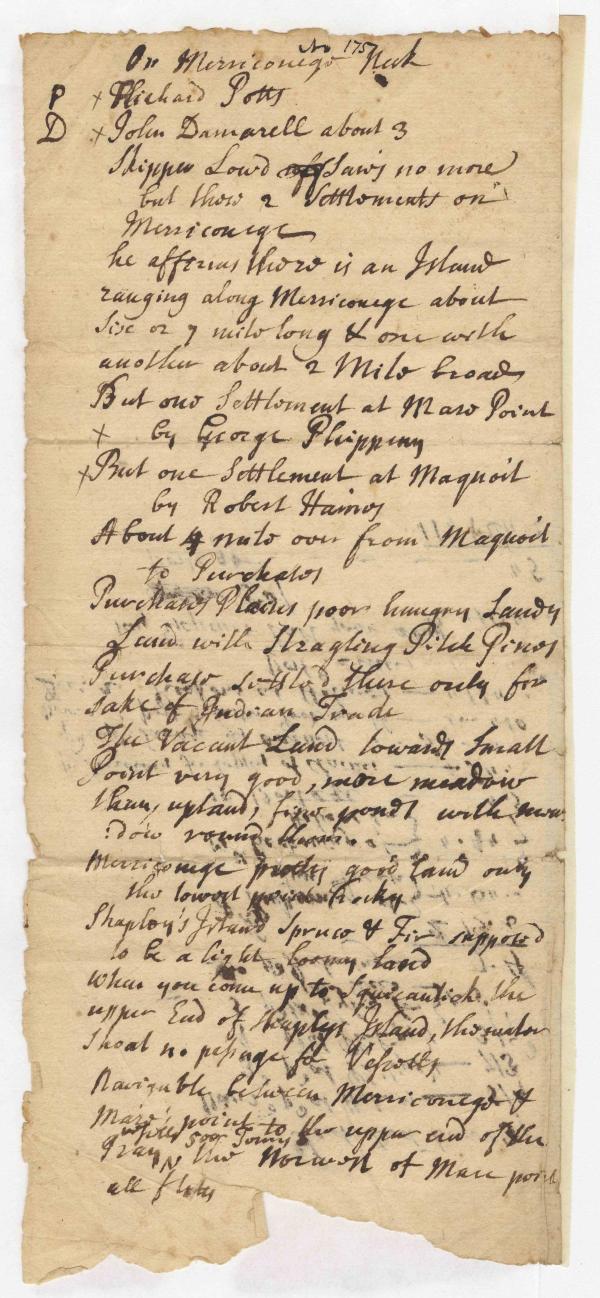 No 1757
On Merriconege Neck
P × Richard Potts
D × John Damarell about 3
Skipper Lowd Saw's no more
but those 2 Settlements on
Merriconege
he affirms there is an Island
ranging along Merriconege about
Six or 7 mile long & one with
another about 2 Mile broad
But one Settlement at Mare Point
× by George Phippeny
× But one Settlement at Maquoit
by Robert Haines
About 4 mile over from Maquoit
to Purchases
Purchases Plaines poor hungry Sandy
Land with Stragling Pitch Pines
Purchase settled there only for
sake of Indian Trade
The Vacant Land towards Small
Point very good, more meadow
than upland, fine ponds with mea
:dow round them.
Merriconege pretty good land only
the lowest point Rocky
Shapley's Island Spruce & Fir supposed
to be a light loomy land
When you come up to Squicantick the
upper End of Shapleys Island, the water
Shoal no passage for Vessells
Navigable between Merriconege &
Mare point to the upper end of the
500 Tonns
the Norwest of Mare point
all flats